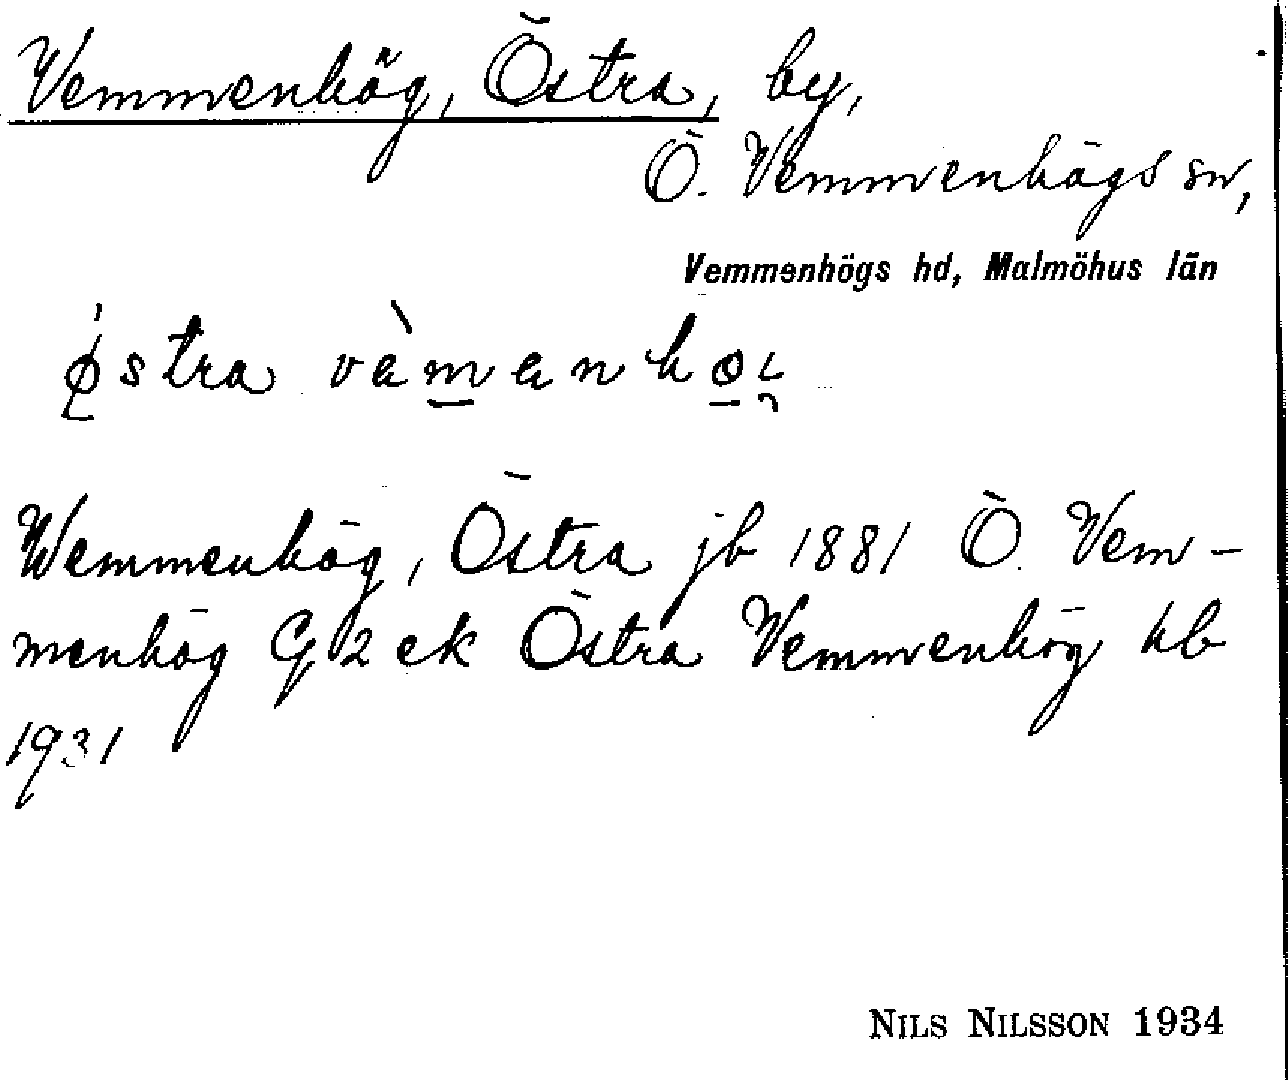 Vemmenhög, Östra, by,
Ö. Vemmenhögs sn,
Vemmenhögs hd, Malmöhus län
østra vàmanhoi
Wemmenhög, Östra jb 1881 Ö. Vem-
menhög G 2 ek Östra Vemmenhög hb
1931
NILS NILSSON 1934